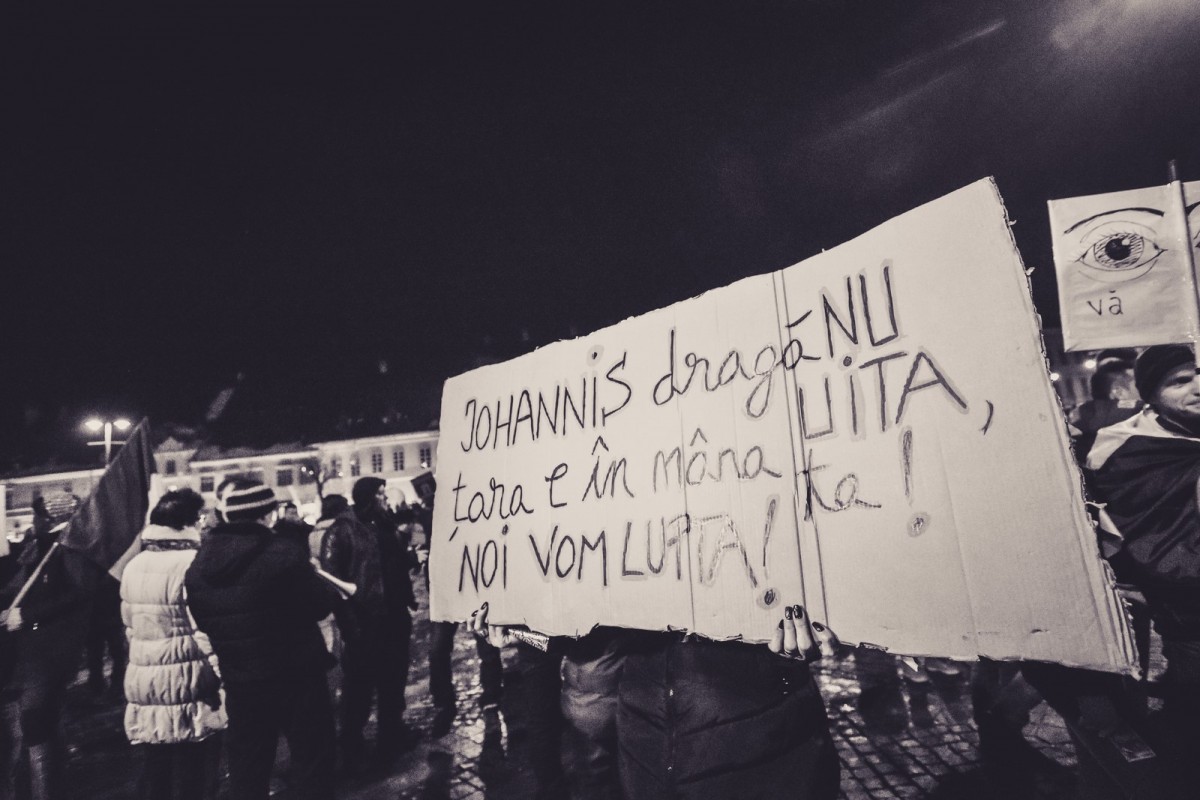 JOHANNIS dragă NU UITA,
țara e în mâna ta!
NOI VOM LUPTA!
vă